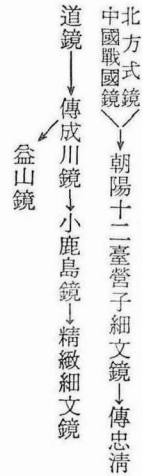 北方式鏡
中國戰國鏡→朝陽十二臺營子細文鏡→傳忠淸
道鏡→傳成川鏡→小鹿島鏡→精緻細文鏡
益山鏡